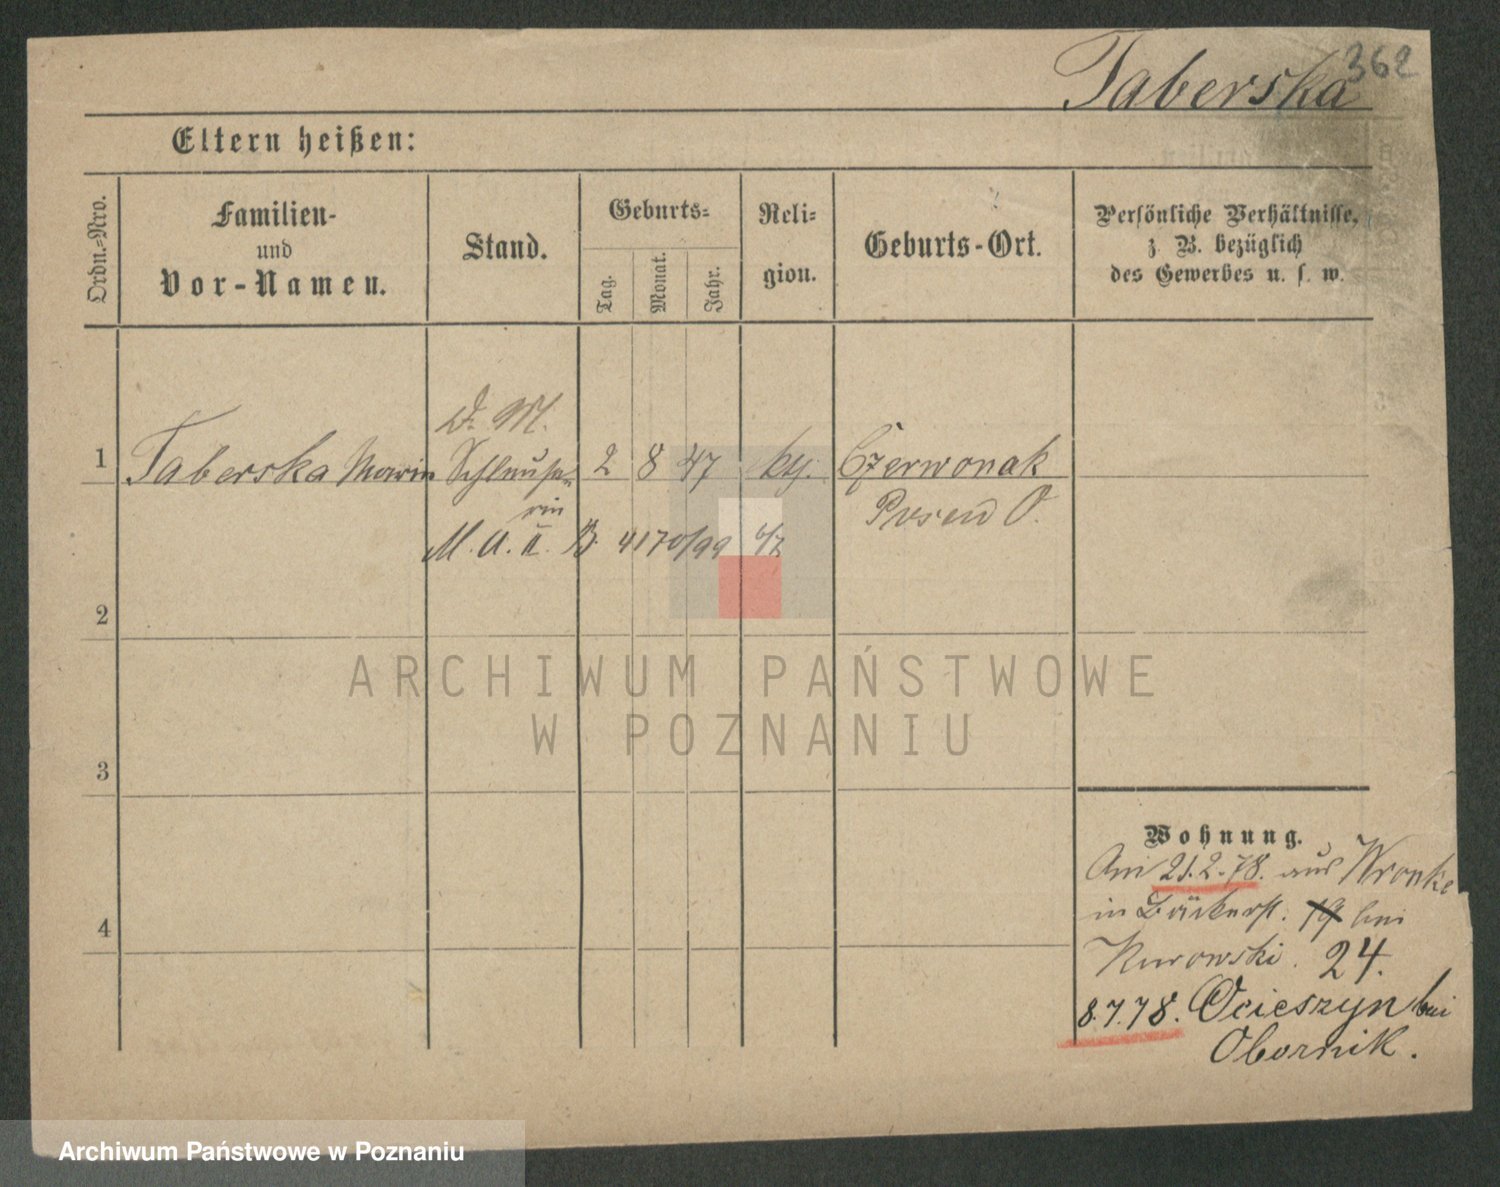 362
Taberska
Eltern heißen:
Ordn.-Nro.
Familien-
und
Vor-Namen.
Stand.
Geburts-
Tag.
Monat.
Jahr.
Reli-
gion.
Geburts-Ort.
Persönliche Verhältnisse,
z. B. bezüglich
des Gewerbes u. s. w.
D. M.
1 Taberska Marie 2 8 47 kth. Czerwonak
rin
Posen O.
M. A. II. B. 4170/99
2
ARCHIWUM PAŃSTWOWE
W POZNANIU
3
Wohnung.
Am 21.2.78. aus Wronke
in Bäckerst. 19 bei
Kurowski. 24.
4
8.7.78. Ocieszyn bei
Obornik.
Archiwum Państwowe w Poznaniu